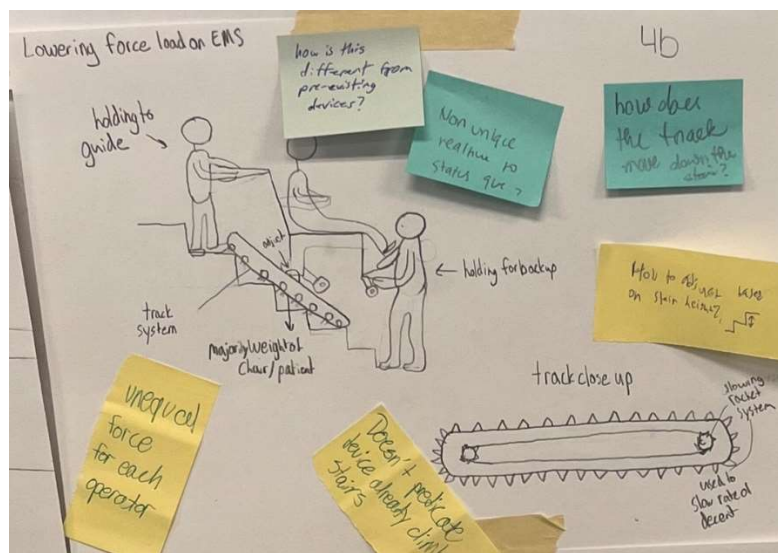 Lowering force load on EMS
4b
how is this
different from
pre-existing
devices?
Non unique
relative to
status quo?
how does
the track
move down the
stairs?
holding to
guide
adjust
holding for backup
track
system
majority weight of
chair/patient
How to adjust based
on stair height?
unequal
force
for each
operator
Doesn't predicate
device already climb
stairs
track close up
slowing
rocket
system
used to
slow rate of
decent